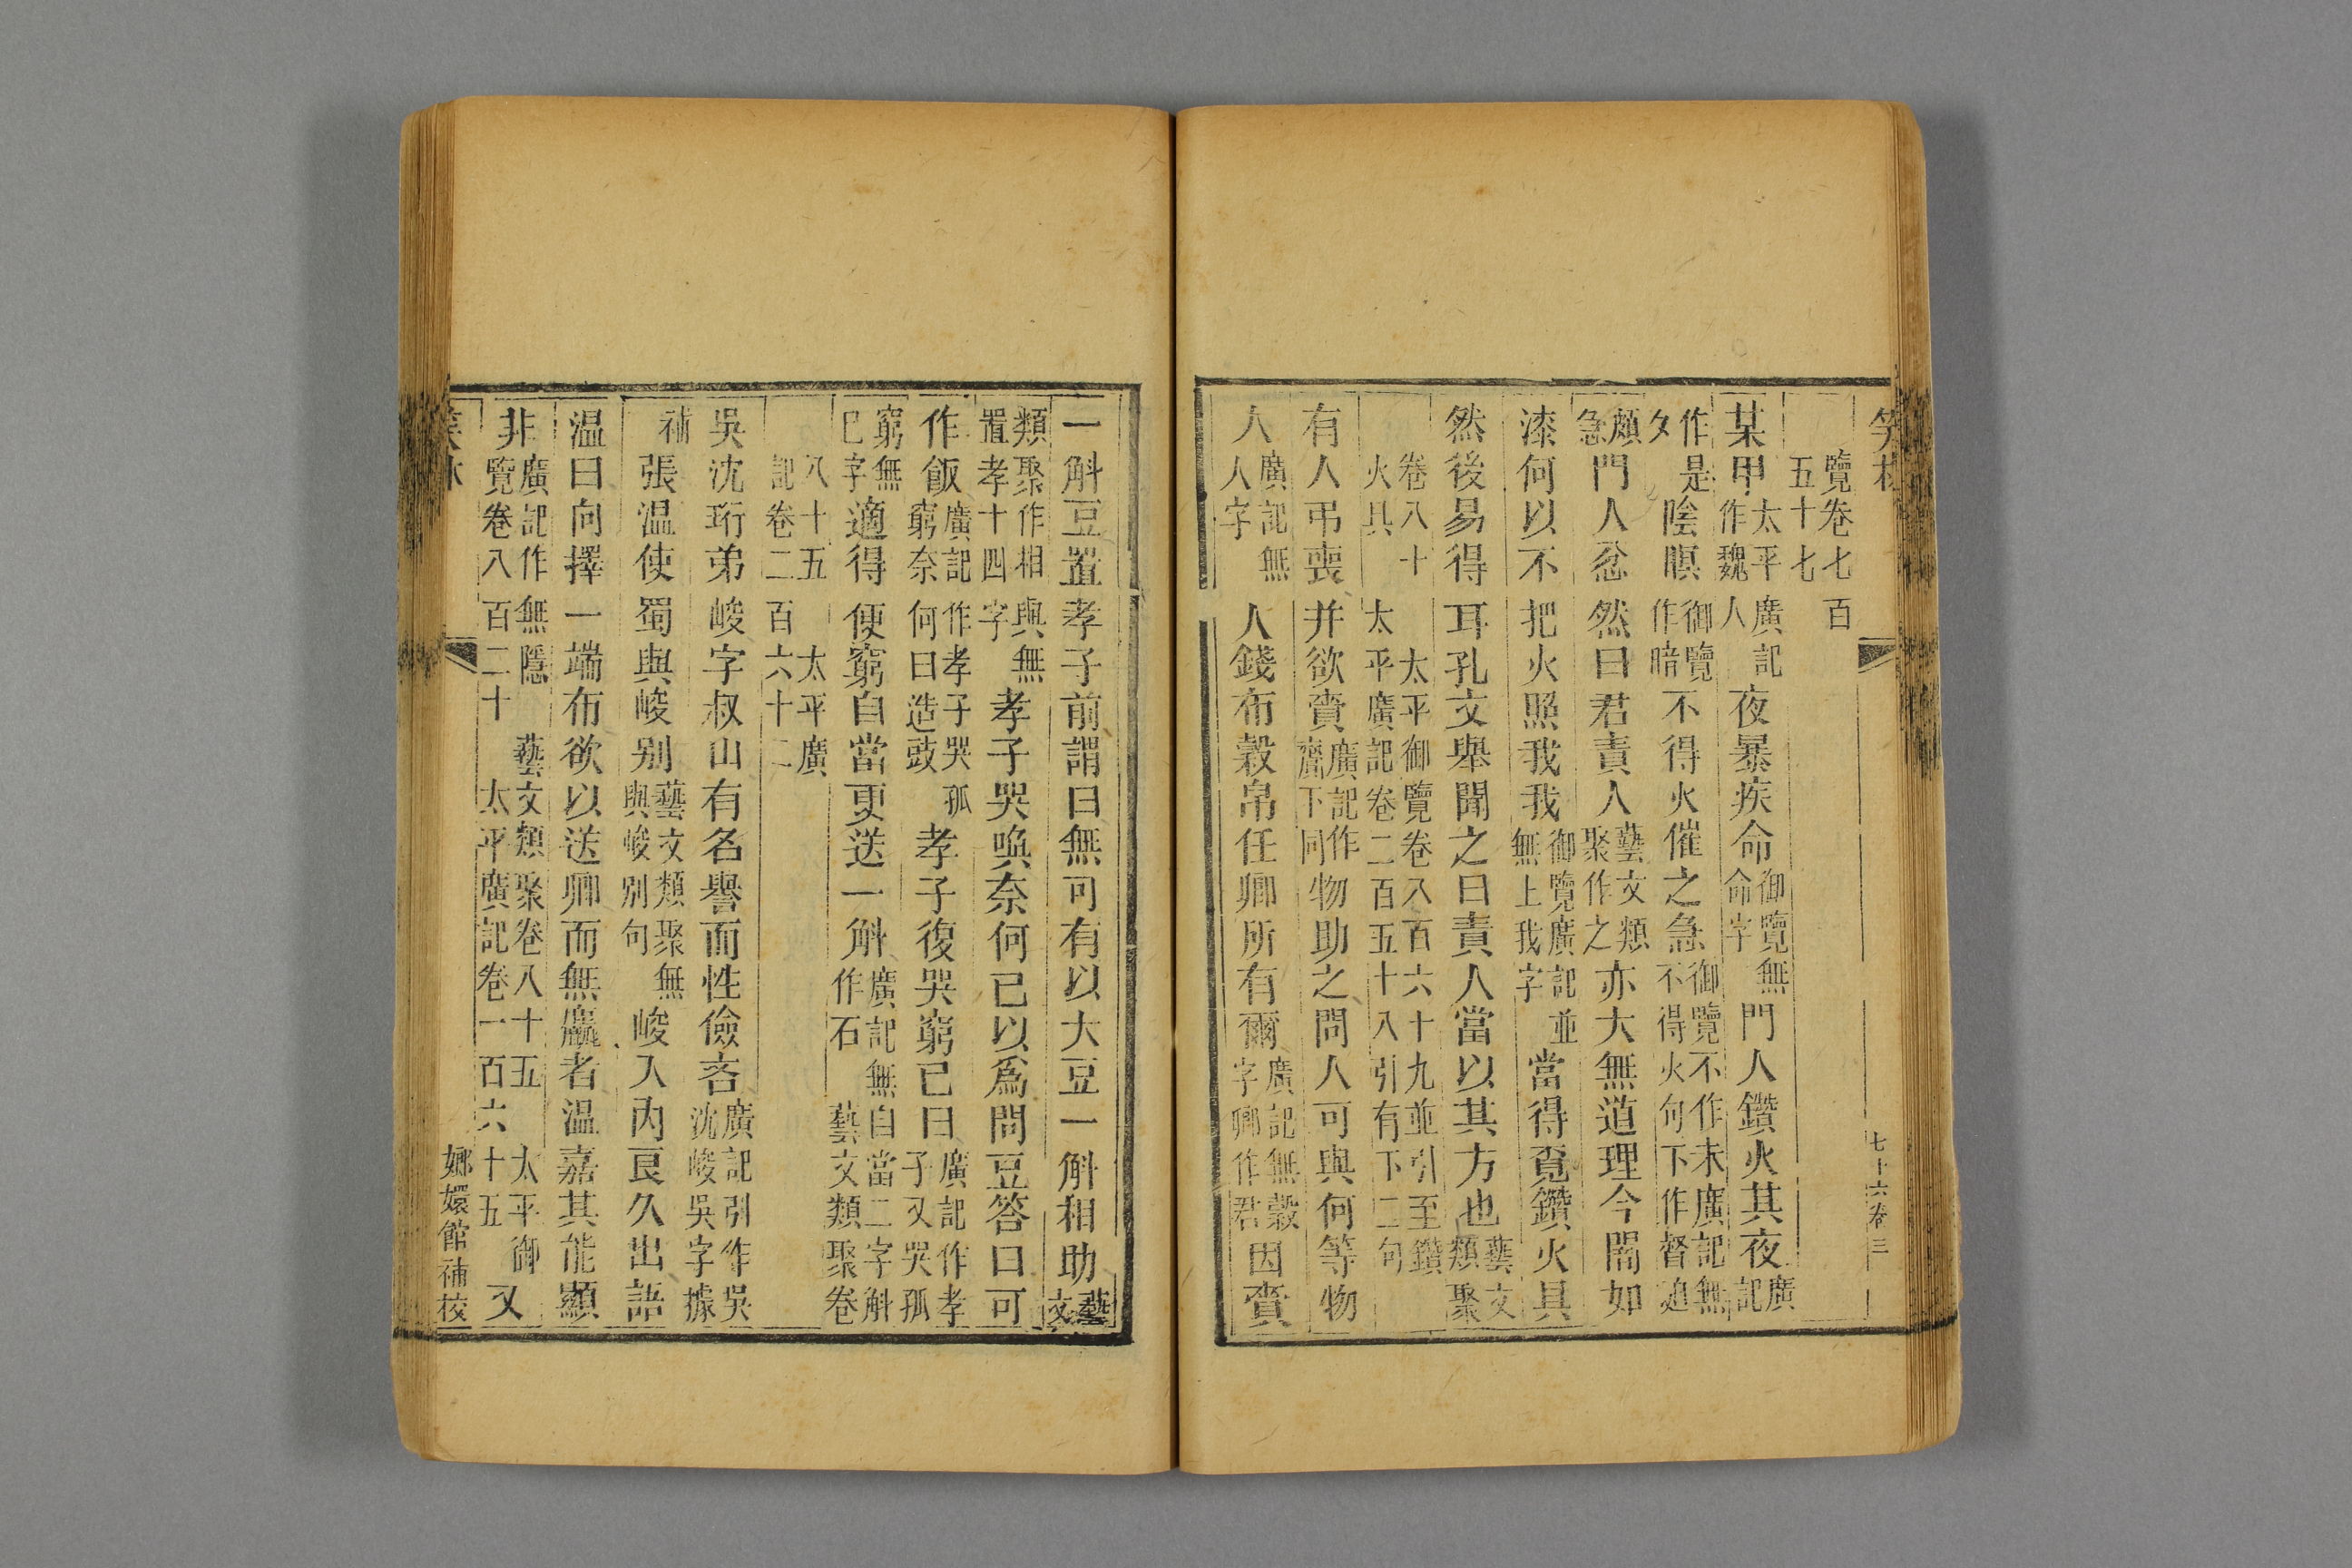 笑林 七十六卷三
覽卷七百五十七
某甲太平廣記作魏人夜暴疾命御覽無命字門人鑽火其夜廣記
作是夕陰瞑御覽作暗不得火催之急御覽不作未廣記無不得火句下作督迫
頗急門人忿然曰君責人藝文類聚作之亦大無道理今闇如
漆何以不把火照我我御覽廣記並無上我字當得覔鑽火具
然後易得耳孔文舉聞之曰責人當以其方也藝文類聚
卷八十 太平御覽卷八百六十九並引至鑽火具 太平廣記卷二百五十八引有下二句
有人弔喪并欲賷廣記作齎下同物助之問人可與何等物
人廣記無人字人錢布穀帛任卿所有爾廣記無穀字卿作君因賷
一斛豆置孝子前謂曰無可有以大豆一斛相助藝文
類聚作相與無置孝十四字孝子哭喚奈何已以爲問豆答曰可
作飯廣記作孝子哭孤窮奈何曰造豉孝子復哭窮已曰廣記作孝子又哭孤
窮無已字適得便窮自當更送一斛廣記無自當二字斛作石 藝文類聚卷
八十五 太平廣記卷二百六十二
吳沈珩弟峻字叔山有名譽而性儉吝廣記引作吳沈峻吳字據
補張温使蜀與峻别藝文類聚無與峻别句峻入内良久出語
温曰向擇一端布欲以送卿而無麤者温嘉其能顯
非廣記作無隱 藝文類聚卷八十五 太平御覽卷八百二十 太平廣記卷一百六十五又
笑林 嫏嬛館補校